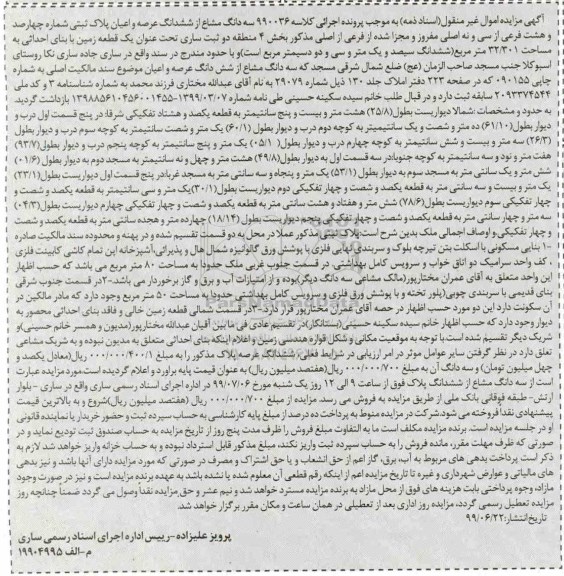 آگهی مزایده اموال غیر منقول(اسناد ذمه) به موجب پرونده اجرائی کلاسه ۹۹۰۰۳۶ سه دانگ مشاع از ششدانگ عرصه و اعیان پلاک ثبتی شماره چهارصد
و هشت فرعی از سی و نه اصلی مفروز و مجزا شده از فرعی از اصلی مذکور بخش ۴ منطقه دو ثبت ساری تحت عنوان یک قطعه زمین با بنای احداثی به
مساحت ۳۲/۳۰۱ متر مربع(ششدانگ سیصد و یک متر و سی و دو دسیمتر مربع است)و با حدود مندرج در سند واقع در ساری جاده ساری نکا روستای
اسبوکلا جنب مسجد صاحب الزمان (عج) ضلع شمال شرقی مسجد که سه دانگ مشاع از شش دانگ عرصه و اعیان موضوع سند مالکیت اصلی به شماره
چاپی ۰۹۰۱۵۵ که در صفحه ۲۲۳ دفتر املاک جلد ۱۳۰ ذیل شماره ۲۹۰۷۹ به نام آقای عبدالله مختاری فرزند محمد به شماره شناسنامه ۳ و کد ملی
۲۰۹۳۳۷۴۵۴۴ سابقه ثبت دارد و در قبال طلب خانم سیده سکینه حسینی طی نامه شماره ۱۳۹۸۸۵۶۱۰۴۵۶۰۰۱۴۵۵-۱۳۹۹/۰۳/۰۷ بازداشت گردید.
به حدود و مشخصات :شمالا دیواریست بطول(۸/۲۵) هشت متر و بیست و پنج سانتیمتر به قطعه یکصد و هشتاد تفکیکی شرقا: در پنج قسمت اول درب و
دیوار بطول(۶۱/۱۰) ده متر و شصت و یک سانتیمتر به کوچه دوم درب و دیوار بطول (۶۰/۱) یک متر و شصت سانتیمتر به کوچه سوم درب و دیوار بطول
(۲۶/۳) سه متر و بیست و شش سانتیمتر به کوچه چهارم درب و دیوار بطول( ۰۵/۱) یک متر و پنج سانتیمتر به کوچه پنجم درب و دیوار بطول(۹۳/۷)
هفت متر و نود و سه سانتیمتر به کوچه جنوبا:در سه قسمت اول به دیوار بطول(۴۹/۸) هشت متر و چهل و نه سانتیمتر به مسجد دوم به دیوار بطول (۰۱/۶)
شش متر و یک سانتی متر به مسجد سوم به دیوار بطول (۵۳/۱) یک متر و پنجاه و سه سانتی متر به مسجد غربا:در پنج قسمت اول دیواریست بطول(۲۳/۱)
یک متر و بیست و سه سانتی متر به قطعه یکصد و شصت و چهار تفکیکی دوم دیواریست بطول(۳۰/۱)یک متر و سی سانتیمتر به قطعه یکصد و شصت و
چهار تفکیکی سوم دیواریست بطول(۷۸/۶) شش متر و هفتاد و هشت سانتی متر به قطعه یکصد و شصت و چهار تفکیکی چهارم دیواریست بطول(۰۴/۳)
سه متر و چهار سانتی متر به قطعه یکصد و شصت و چهار تفکیکی پنجم دیواریست بطول (۱۸/۱۴) چهارده متر و هجده سانتی متر به قطعه یکصد و شصت
و چهار تفکیکی.و اوصاف اجمالی ملک بدین شرح است:پلاک ثبتی مذکور عملا در محل به دو قسمت تقسیم شده و در پهنه و محدوده سند مالکیت صادره
۱- بنایی مسکونی با اسکلت بتن تیرچه بلوک و سربندی نهایی فلزی با پوشش ورق گالوانیزه شمال هال و پذیرائی،آشپزخانه این تمام کاشی کابینت فلزی
، کف واحد سرامیک دو اتاق خواب و سرویس کامل بهداشتی در قسمت جنوب غربی ملک حدودا به مساحت ۸۰ متر مربع می باشد که حسب اظهار
این واحد متعلق به آقای عمران مختارپور(مالک مشاعی سه دانگ دیگر)بوده و از امتیازات آب و برق و گاز برخوردار می باشد-۲در قسمت جنوب شرقی
بنای قدیمی با سربندی چوبی(پلور تخته و با پوشش ورق فلزی و سرویس کامل بهداشتی حدودا به مساحت ۵۰ متر مربع وجود دارد که مادر مالکین در
آن سکونت دارد این دو مورد حسب اظهار در حصه آقای عمران مختارپور قرار دارد-۳در قسمت شمالی قطعه زمین خالی و فاقد بنای احداثی محصور به
دیوار وجود دارد که حسب اظهار خانم سیده سکینه حسینی(بستانکار)در تقسیم عادی فی ما بین آقیان عبدالله مختارپور(مدیون و همسر خانم حسینی)و
شریک دیگر تقسیم شده است.با توجه به موقعیت مکانی و شکل قواره هندسی زمین و اعلام اینکه بنای احداثی متعلق به مدیون نبوده و به شریک مشاعی
تعلق دارد در نظر گرفتن سایر عوامل موثر در امر ارزیابی در شرایط فعلی ششدانگ عرصه پلاک مذکور را به مبلغ ۰۰۰/۰۰۰/۴۰۰/۱ ریال(معادل یکصد و
چهل میلیون تومان) و سه دانگ آن به مبلغ ۰۰۰/۰۰۰/۷۰۰ ریال(هفتصد میلیون ریال) به عنوان قیمت پایه برآورد و اعلام گردیده است.مورد مزایده عبارت
است از سه دانگ مشاع از ششدانگ پلاک فوق از ساعت ۹ الی ۱۲ روز یک شنبه مورخ ۹۹/۰۷/۰۶ در اداره اجرای اسناد رسمی ساری واقع در ساری - بلوار
ارتش- طبقه فوقانی بانک ملی از طریق مزایده به فروش می رسد. مزایده از مبلغ ۰۰۰/۰۰۰/۷۰۰ ریال (هفتصد میلیون ریال)شروع و به بالاترین قیمت
پیشنهادی نقدا فروخته می شود.شرکت در مزایده منوط به پرداخت ده درصد از مبلغ پایه کارشناسی به حساب سپرده ثبت و حضور خریدار یا نماینده قانونی
او در جلسه مزایده است. برنده مزایده مکلف است ما به التفاوت مبلغ فروش را ظرف مدت پنج روز از تاریخ مزایده به حساب صندوق ثبت تودیع نماید و در
صورتی که ظرف مهلت مقرر، مانده فروش را به حساب سپرده ثبت واریز نکند، مبلغ مذکور قابل استرداد نبوده و به حساب خزانه واریز خواهد شد لازم به
ذکر است پرداخت بدهی های مربوط به آب، برق، گاز اعم از حق انشعاب و یا حق اشتراک و مصرف در صورتی که مورد مزایده دارای آنها باشد، و نیز بدهی
های مالیاتی و عوارض شهرداری و غیره تا تاریخ مزایده اعم از اینکه رقم قطعی آن معلوم شده یا نشده باشد به عهده برنده مزایده است و نیز در صورت وجود
مازاد، وجوه پرداختی بابت هزینه های فوق از محل مازاد به برنده مزایده مسترد خواهد شد و نیم عشر و حق مزایده نقدا وصول می گردد ضمنا چنانچه روز
مزایده تعطیل رسمی گردد، مزایده روز اداری بعد از تعطیلی در همان ساعت و مکان مقرر برگزار خواهد شد.
تاریخ انتشار: ۹۹/۰۶/۲۲
پرویز علیزاده - رییس اداره اجرای اسناد رسمی ساری
م-الف ۱۹۹۰۴۹۹۵